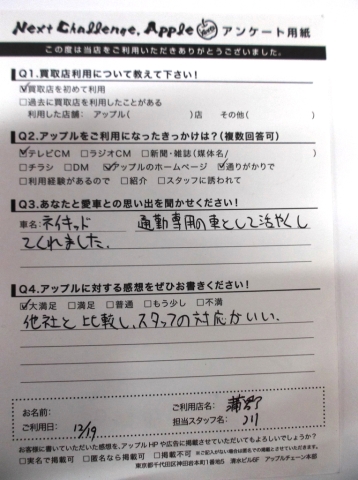 Next Challenge, Apple アンケート用紙
この度は当店をご利用いただきありがとうございました。
Q1.買取店利用について教えて下さい!
☑買取店を初めて利用
□過去に買取店を利用したことがある
利用した店舗: アップル( )店 その他( )
Q2.アップルをご利用になったきっかけは?(複数回答可)
☑テレビCM □ラジオCM □新聞・雑誌(媒体名/ )
□チラシ □DM ☑アップルのホームページ ☑通りがかりで
□利用経験があるので □紹介 □スタッフに誘われて
Q3.あなたと愛車との思い出を聞かせください!
車名:ネイキッド 通勤専用の車として活やくし
てくれました.
Q4.アップルに対する感想をぜひお書きください!
☑大満足 □満足 □普通 □もう少し □不満
他社と比較し、スタッフの対応がいい.
お名前:
ご利用店名: 蒲郡
ご利用日: 12/19
担当スタッフ名:
お客様に書いていただいた感想を、アップルHPや広告に掲載させていただいてもよろしいでしょうか?
□実名で掲載可 □匿名なら掲載可 □掲載不可 ※ご記入がない場合は匿名での掲載とさせていただきます。
東京都千代田区神田岩本町1番地5 清水ビル6F アップルチェーン本部